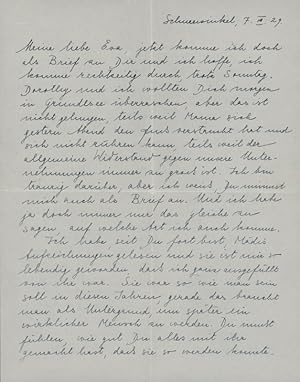 Schneewinkel, 7. III 29.
Meine liebe Eva, jetzt komme ich doch
als Brief an Dir und ich hoffe, ich
komme rechtzeitig durch trotz Sonntag.
Dorothy und ich wollten Dich morgen
in Grundlsee überraschen, aber das ist
nicht gelungen, teils weil Mama sich
gestern Abend den Fuss verstaucht hat und
sich nicht rühren kann, teils weil der
allgemeine Widerstand gegen unsere Unter-
nehmungen immer zu gross ist. Ich bin
traurig darüber, aber ich weiss, Du nimmst
mich auch als Brief an. Und ich habe
ja doch immer nur das gleiche zu
sagen, auf welche Art ich auch komme.
Ich habe seit Du fort bist, Mädis
Aufzeichnungen gelesen und sie ist mir so
lebendig geworden, dass ich ganz angefüllt
von ihr war. Sie war so wie man sein
soll in diesen Jahren, gerade das braucht
man als Untergrund, um später ein
wirklicher Mensch zu werden. Du musst
fühlen, wie gut Du alles mit ihr
gemacht hast, dass sie so werden konnte.